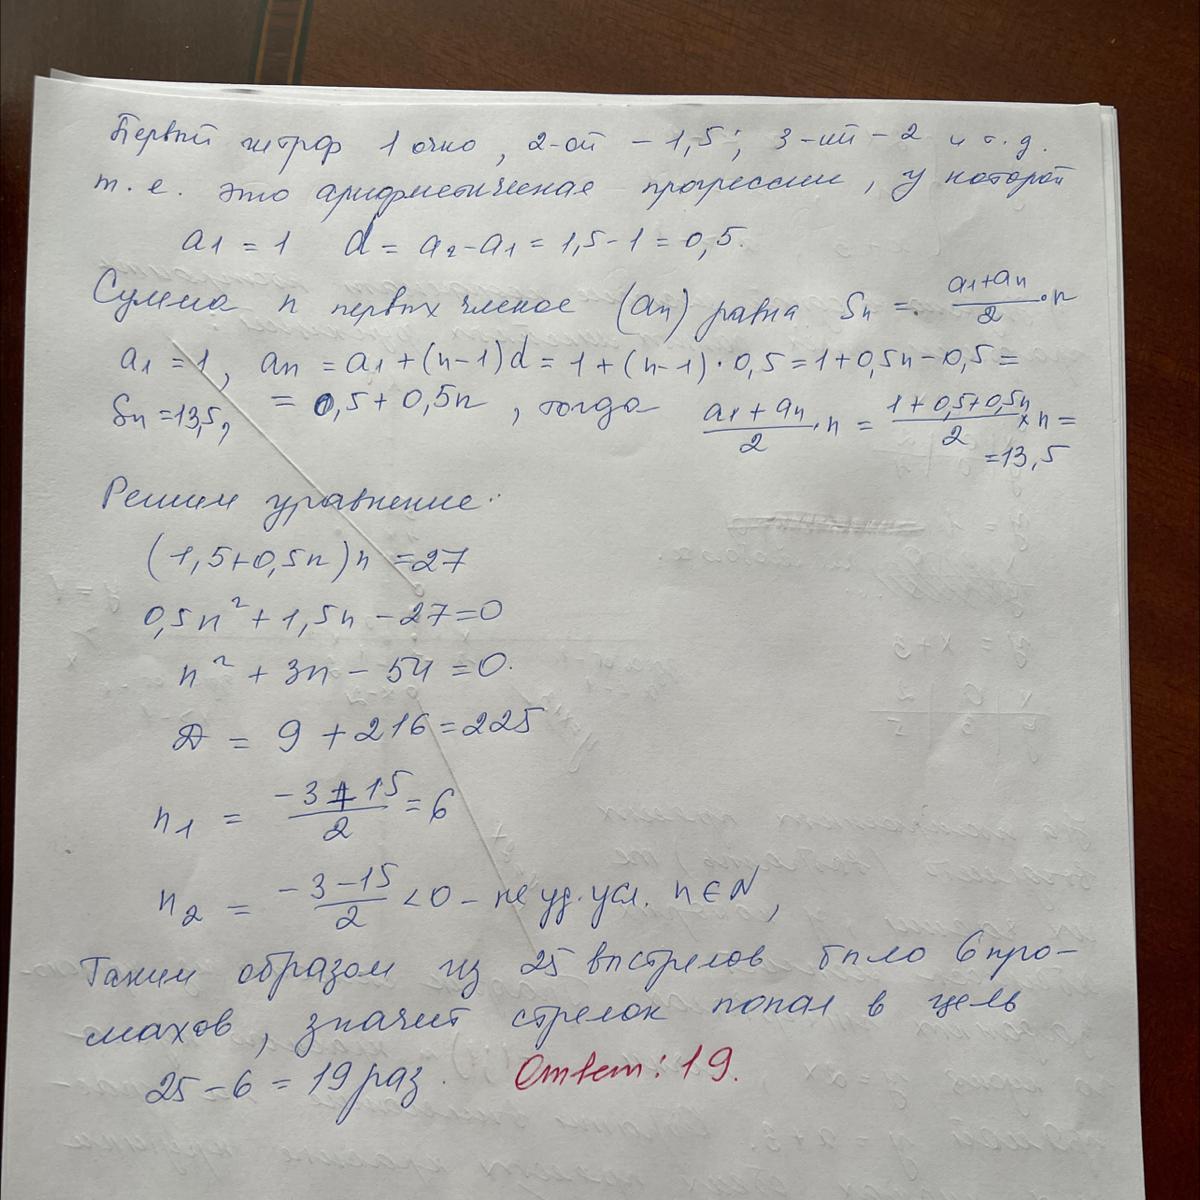 Первый штраф 1 очко, 2-ой - 1,5; 3-ий - 2 и т.д.
т.е. это арифметическая прогрессия, у которой
a1 = 1 d = a2 - a1 = 1,5 - 1 = 0,5.
Сумма n первых членов (an) равна Sn = (a1+an)/2 · n
a1 = 1, an = a1 + (n-1)d = 1 + (n-1) · 0,5 = 1 + 0,5n - 0,5 =
Sn = 13,5, = 0,5 + 0,5n, тогда (a1 + an)/2 · n = (1 + 0,5 + 0,5n)/2 × n =
= 13,5
Решим уравнение:
(1,5 + 0,5n)n = 27
0,5n² + 1,5n - 27 = 0
n² + 3n - 54 = 0.
D = 9 + 216 = 225
n1 = (-3 + 15)/2 = 6
n2 = (-3 - 15)/2 < 0 - не уд. усл. n ∈ N,
Таким образом из 25 выстрелов было 6 про-
махов, значит стрелок попал в цель
25 - 6 = 19 раз. Ответ: 19.